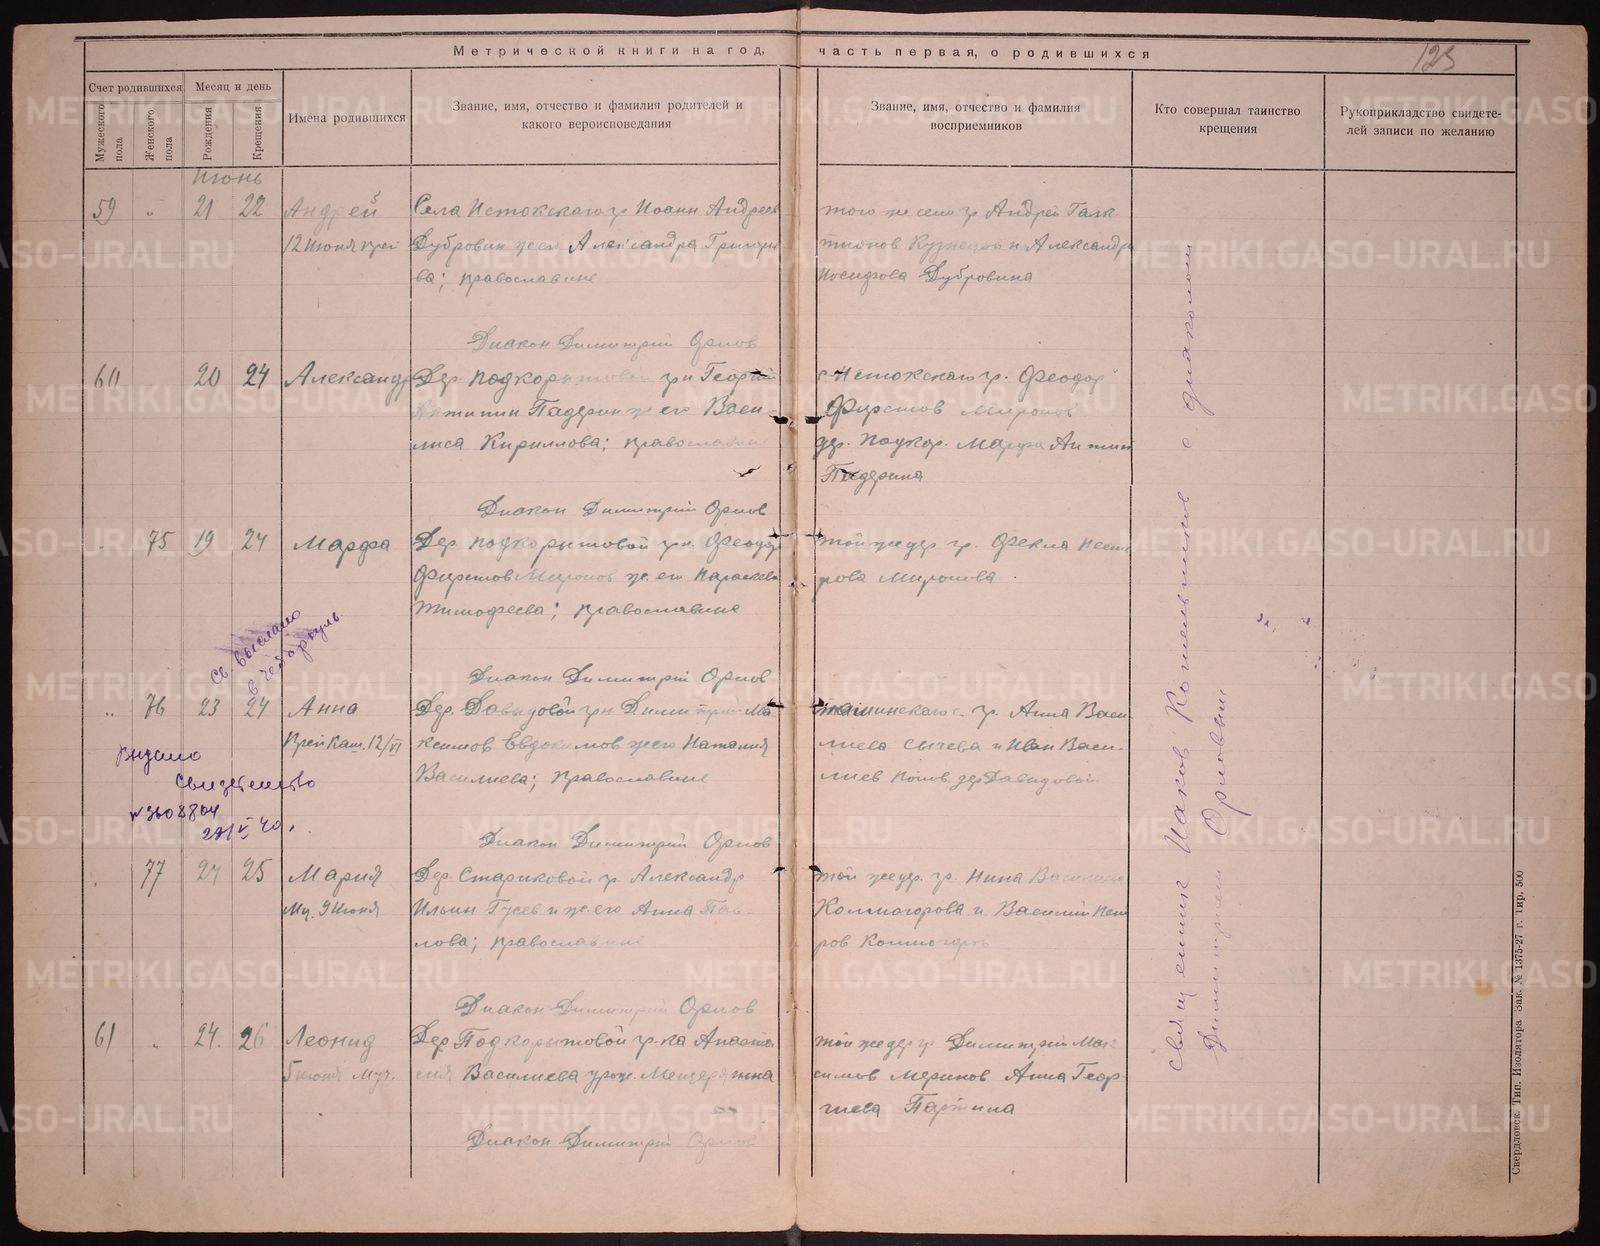 Метрической книги на год, часть первая, о родившихся
123
Счет родившихся
Мужеского пола
Женского пола
Месяц и день
Рождения
Крещения
Имена родившихся
Звание, имя, отчество и фамилия родителей и
какого вероисповедания
Звание, имя, отчество и фамилия
восприемников
Кто совершал таинство
крещения
Рукоприкладство свидете-
лей записи по желанию
Июнь
59 " 21 22 Андрей
12 Июня
Села Истокскаго гр Иоанн Андреев
Дубровин жена Александра Григорие
ва; православные
того же села гр Андрей Галак
тионов Кузнецов и Александра
Иосифова Дубровина
Диакон Димитрий Орлов
60 20 24 Александр
Дер. Подкорытовой грн Георгий
Антипин Падерин ж его Васи-
лиса Кириллова; православные
с Истокскаго гр. Феодор
Фирстов Миронов
дер. Подкор. Марфа Антип
Падерина
Диакон Димитрий Орлов
75 19 24 Марфа
Дер Подкорытовой грн. Феодор
Фирстов Миронов ж. его Параскева
Тимофеева; православные
той же дер гр. Фекла Несте
рова Миронова
Св. выслано
в Чебаркуль
Диакон Димитрий Орлов
" 76 23 24 Анна
12/VI
Дер. Давыдовой грн Димитрий Ма
ксимов Евдокимов ж его Наталия
Василиева; православные
гр. Анна Васи-
лиева Сычева и Иван Васи-
лиев Попов дер Давыдовой
Выдано
Свидетельство
№ 3608804
40
Диакон Димитрий Орлов
77 24 25 Мария
Мц. 9 Июня
Дер. Стариковой гр Александр
Ильин Гусев и ж. его Анна Пав-
лова; православные
той же дер. гр. Нина Василиева
Колмогорова и Василий Пет
ров Колмогоров
Диакон Димитрий Орлов
61 " 24. 26 Леонид
5 июня Муч.
Дер Подкорытовой гр-ка Анаста
сия Василиева урож. Мещерягина
той же дер гр Димитрий Мак
симов Меринов Анна Геор-
гиева Партина
Диакон Димитрий Орлов
Священник Иаков Котельников с диаконом
Димитрием Орловым
Свердловск. Тип. Изолятора Зак. № 1375-27 г. Тир. 500
METRIKI.GASO-URAL.RU